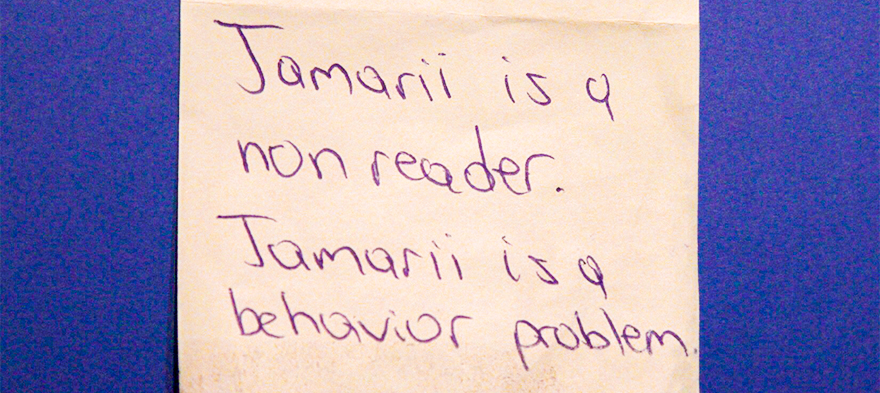 Jamarii is a
non reader.
Jamarii is a
behavior problem.